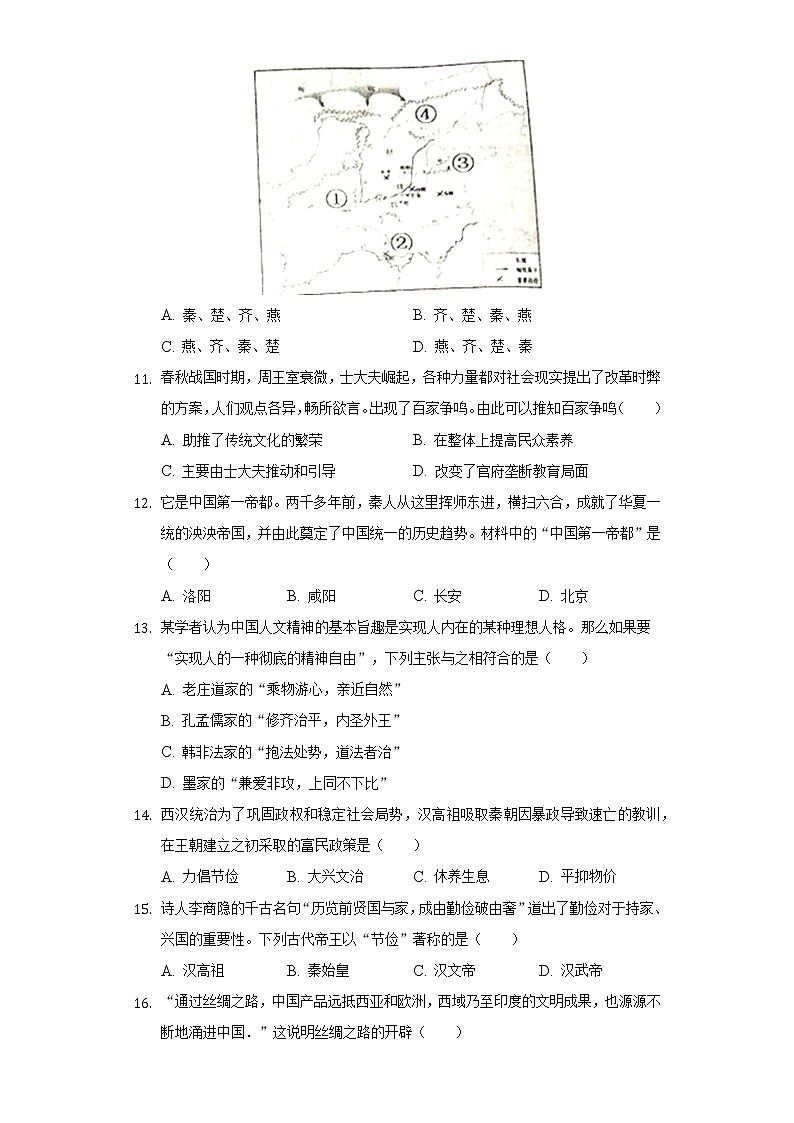 ④
③
①
②
A. 秦、楚、齐、燕 B. 齐、楚、秦、燕
C. 燕、齐、秦、楚 D. 燕、齐、楚、秦
11. 春秋战国时期，周王室衰微，士大夫崛起，各种力量都对社会现实提出了改革时弊
的方案，人们观点各异，畅所欲言。出现了百家争鸣。由此可以推知百家争鸣（　　）
A. 助推了传统文化的繁荣 B. 在整体上提高民众素养
C. 主要由士大夫推动和引导 D. 改变了官府垄断教育局面
12. 它是中国第一帝都。两千多年前，秦人从这里挥师东进，横扫六合，成就了华夏一
统的泱泱帝国，并由此奠定了中国统一的历史趋势。材料中的“中国第一帝都”是
（　　）
A. 洛阳 B. 咸阳 C. 长安 D. 北京
13. 某学者认为中国人文精神的基本旨趣是实现人内在的某种理想人格。那么如果要
“实现人的一种彻底的精神自由”，下列主张与之相符合的是（　　）
A. 老庄道家的“乘物游心，亲近自然”
B. 孔孟儒家的“修齐治平，内圣外王”
C. 韩非法家的“抱法处势，道法者治”
D. 墨家的“兼爱非攻，上同不下比”
14. 西汉统治为了巩固政权和稳定社会局势，汉高祖吸取秦朝因暴政导致速亡的教训，
在王朝建立之初采取的富民政策是（　　）
A. 力倡节俭 B. 大兴文治 C. 休养生息 D. 平抑物价
15. 诗人李商隐的千古名句“历览前贤国与家，成由勤俭破由奢”道出了勤俭对于持家、
兴国的重要性。下列古代帝王以“节俭”著称的是（　　）
A. 汉高祖 B. 秦始皇 C. 汉文帝 D. 汉武帝
16. “通过丝绸之路，中国产品远抵西亚和欧洲，西域乃至印度的文明成果，也源源不
断地涌进中国．”这说明丝绸之路的开辟（　　）